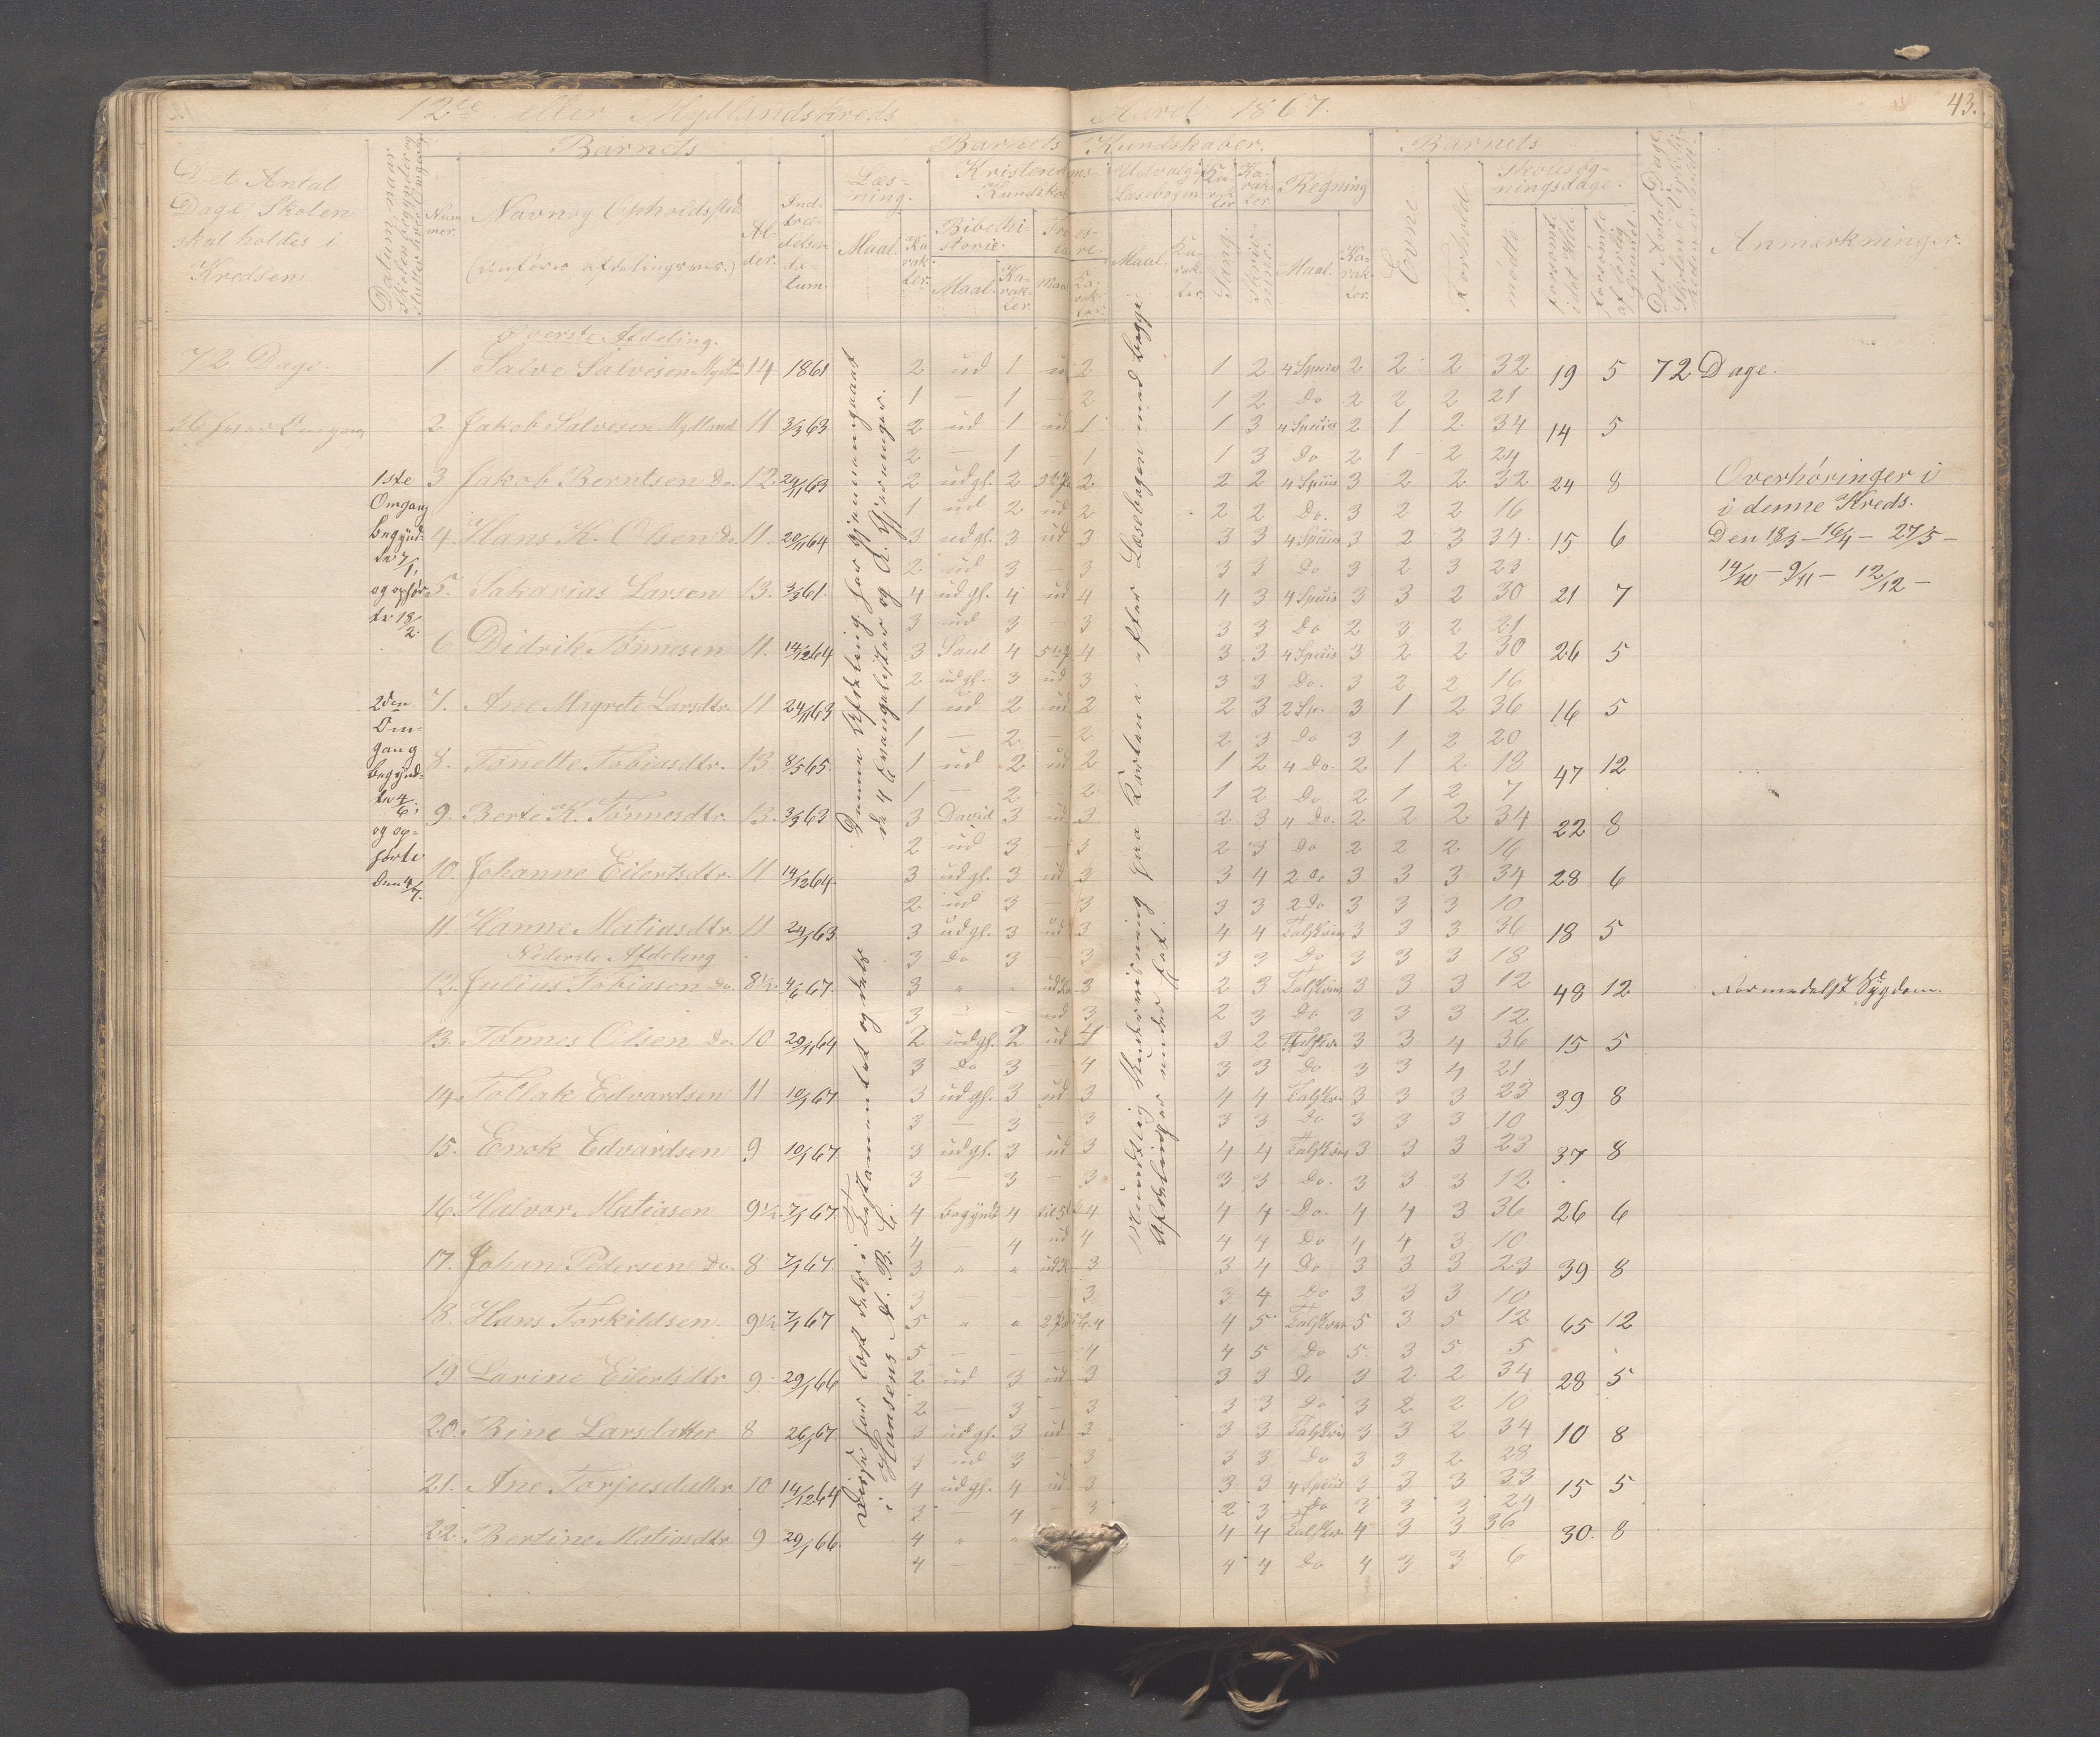 12te eller Mydlandskreds Aaret 1867. 43.
Det Antal Dage Skolen skal holdes i Kredsen
Datum naar Skolen begynder og slutter hver Omgang
Barnets
Nummer
Navn og Opholdssted
(venføres afdelingsvis.)
Alder.
Indtrædelsesdatum.
Barnets Kundskaber.
Læsning.
Maal.
Karakter.
Kristendomskundskab
Bibelhistorie.
Maal.
Karakter.
Troeslære.
Maal
Karakter.
Udvalg i Læsebogen
Maal.
Karakter.
Karakter
Sang.
Karakter
Skrivning.
Regning
Maal.
Karakter.
Barnets
Evne
Forhold
Skolesøgningsdage.
mødte
forsømte i det Hele.
forsømte af lovlig Grund.
Det Antal Dage Skolen i Virkeligheden er holdt.
Anmærkninger.
Øverste Afdeling.
72 Dage. 1 Salve Salvesen Mydland 14 1861 2 ud 1 ud 2 1 2 4 Speci 2 2 2 32 19 5 72 Dage.
1 — 1 — 2 1 2 Do 2 2 2 21
2 Jakob Salvesen Mydland 11 3/3 63 2 ud 1 ud 1 1 3 4 Speci 2 1 2 34 14 5
2 — 1 — 1 1 3 Do 2 1 2 24
3 Jakob Berntsen Do. 12 24/11 63 2 udgl. 2 2 2 2 4 Speci 3 2 2 32 24 8
1 ud 2 ud 2 2 2 Do. 3 2 2 16
4. Hans K. Olsen Do 11. 20/11 64 3 udgl. 3 ud 3 3 3 4 Speci 3 2 3 34. 15 6
2 ud 3 — 3 3 3 Do 3 2 3 23
5. Sakarias Larsen 13. 3/3 61. 4 udgl. 4 ud 4 4 3 4 Speci 3 3 2 30 21 7
3 ud 3 — 3 3 3 Do 2 3 2 21
6. Didrik Tønnesen 11. 14/12 64 3 Saul 4 4 3 3 4 Speci 3 2 2 30 26 5
2 udgl. 3 ud 3 3 3 Do. 3 2 2 16
7. Ane Mgrete Larsdtr. 11 24/11 63 1 ud 2 ud 2 2 3 2 Sp. 3 1 2 36 16 5
1 — 2 — 2 2 3 Do 3 1 2 20
8. Tonette Tobiasdtr. 13 8/5 65. 1 ud 2 ud 2 1 2 4 Do. 2 1 2 18 47 12
1 — 2 — 2 1 2 Do 2 1 2 7
9. Berte K. Tønnesdtr. 13. 3/3 63 3 David 3 ud 3 2 3 4 Do. 2 2 2 34 22 8
2 ud 3 — 3 2 3 Do 2 2 2 16
10. Johanne Eilertsdtr. 11 14/12 64. 3 udgl. 3 ud 3 3 4 2 Do 3 3 3 34 28 6
2 ud 3 — 3 3 3 2 Do 3 3 3 10
11. Hanne Matiasdtr 11 24/11 63 3 udgl. 3 ud 3 4 4 3 3 3 36 18 5
Nederste Afdeling
3 Do 3 — 3 3 3 Do 3 3 3 18
12. Julius Tobiasen Do. 8½ 4/6 67. 3 " " 3 2 3 3 3 3 12 48 12 Formedelst Sygdom.
3 — — ud 3 2 3 Do 3 3 3 12
13. Tønnes Olsen Do. 10 20/11 64 2 udgl. 2 ud 4 3 2 3 3 4 36 15 5
3 Do 3 — 4 3 3 Do 3 3 4 21
14. Tollak Edvardsen 11 10/1 67 3 udgl. 3 ud 3 4 4 3 3 3 23 39 8
3 — 3 — 3 3 3 Do 3 3 3 10
15. Enok Edvardsen 9 10/1 67. 3 udgl. 3 ud 3 4 4 3 3 3 23 37 8
3 — 3 — 3 3 3 Do. 3 3 3 12
16. Halvor Matiasen 9½ 7/1 67. 4 begyndt 4 4 4 4 Do. 4 4 3 36 26 6
4 — 4 ud 4 4 4 Do 4 4 3 10
17. Johan Pedersen Do. 8 7/1 67. 3 " " 3 3 4 Do 3 3 3 23 39 8
3 — — — 3 3 4 Do 3 3 3 10
18. Hans Torkildsen 9½ 7/1 67 5 " " 4 4 5 5 3 5 12 65 12
5 — — — 4 4 5 Do 5. 3 5 5
19 Larine Eilertsdtr 9. 29/1 66 2 ud 3 ud 3 3 3 Do 3 2 2 34 28 5
2 — 3 — 3 3 3 Do 3 2 2 10
20. Rine Larsdatter 8 26/1 67. 3 udgl. 3 ud 3 3 3 3 3 2 34 10 8
3 ud 3 — 3 3 3 Do 3 3 2 28
21. Ane Torjusdatter 10 14/12 64 4 udgl. 4 ud 3 3 3 4 Speci 3 3 3 33 15 5
3 — 4 — 3 2 3 Do 3 3 3 24
22. Bertine Matiasdtr. 9 29/1 66. 4 " " 4 4 4 3 3 36 30. 8
4 — — 4 4 Do 4 3 3 6
1ste
Omgang
begyndte 7/1,
og ophørte 18/2.
2den
Omgang
begyndte 4/6;
og ophørte
den 4/7.
Denne Afdeling har gjennemgaaet
de 4 Evangelister og A. Gjerninger.
Disse har læst dels i Testamentet og dels
i Hansens A. B. C.
Mundtlig Undervisning paa Karterne efter Læsebogen med begge
Afdelinger under Eet.
Overhøringer i
i denne Kreds.
Den 18/3 — 16/4 — 27/5 —
14/10 — 9/11 — 12/12 —